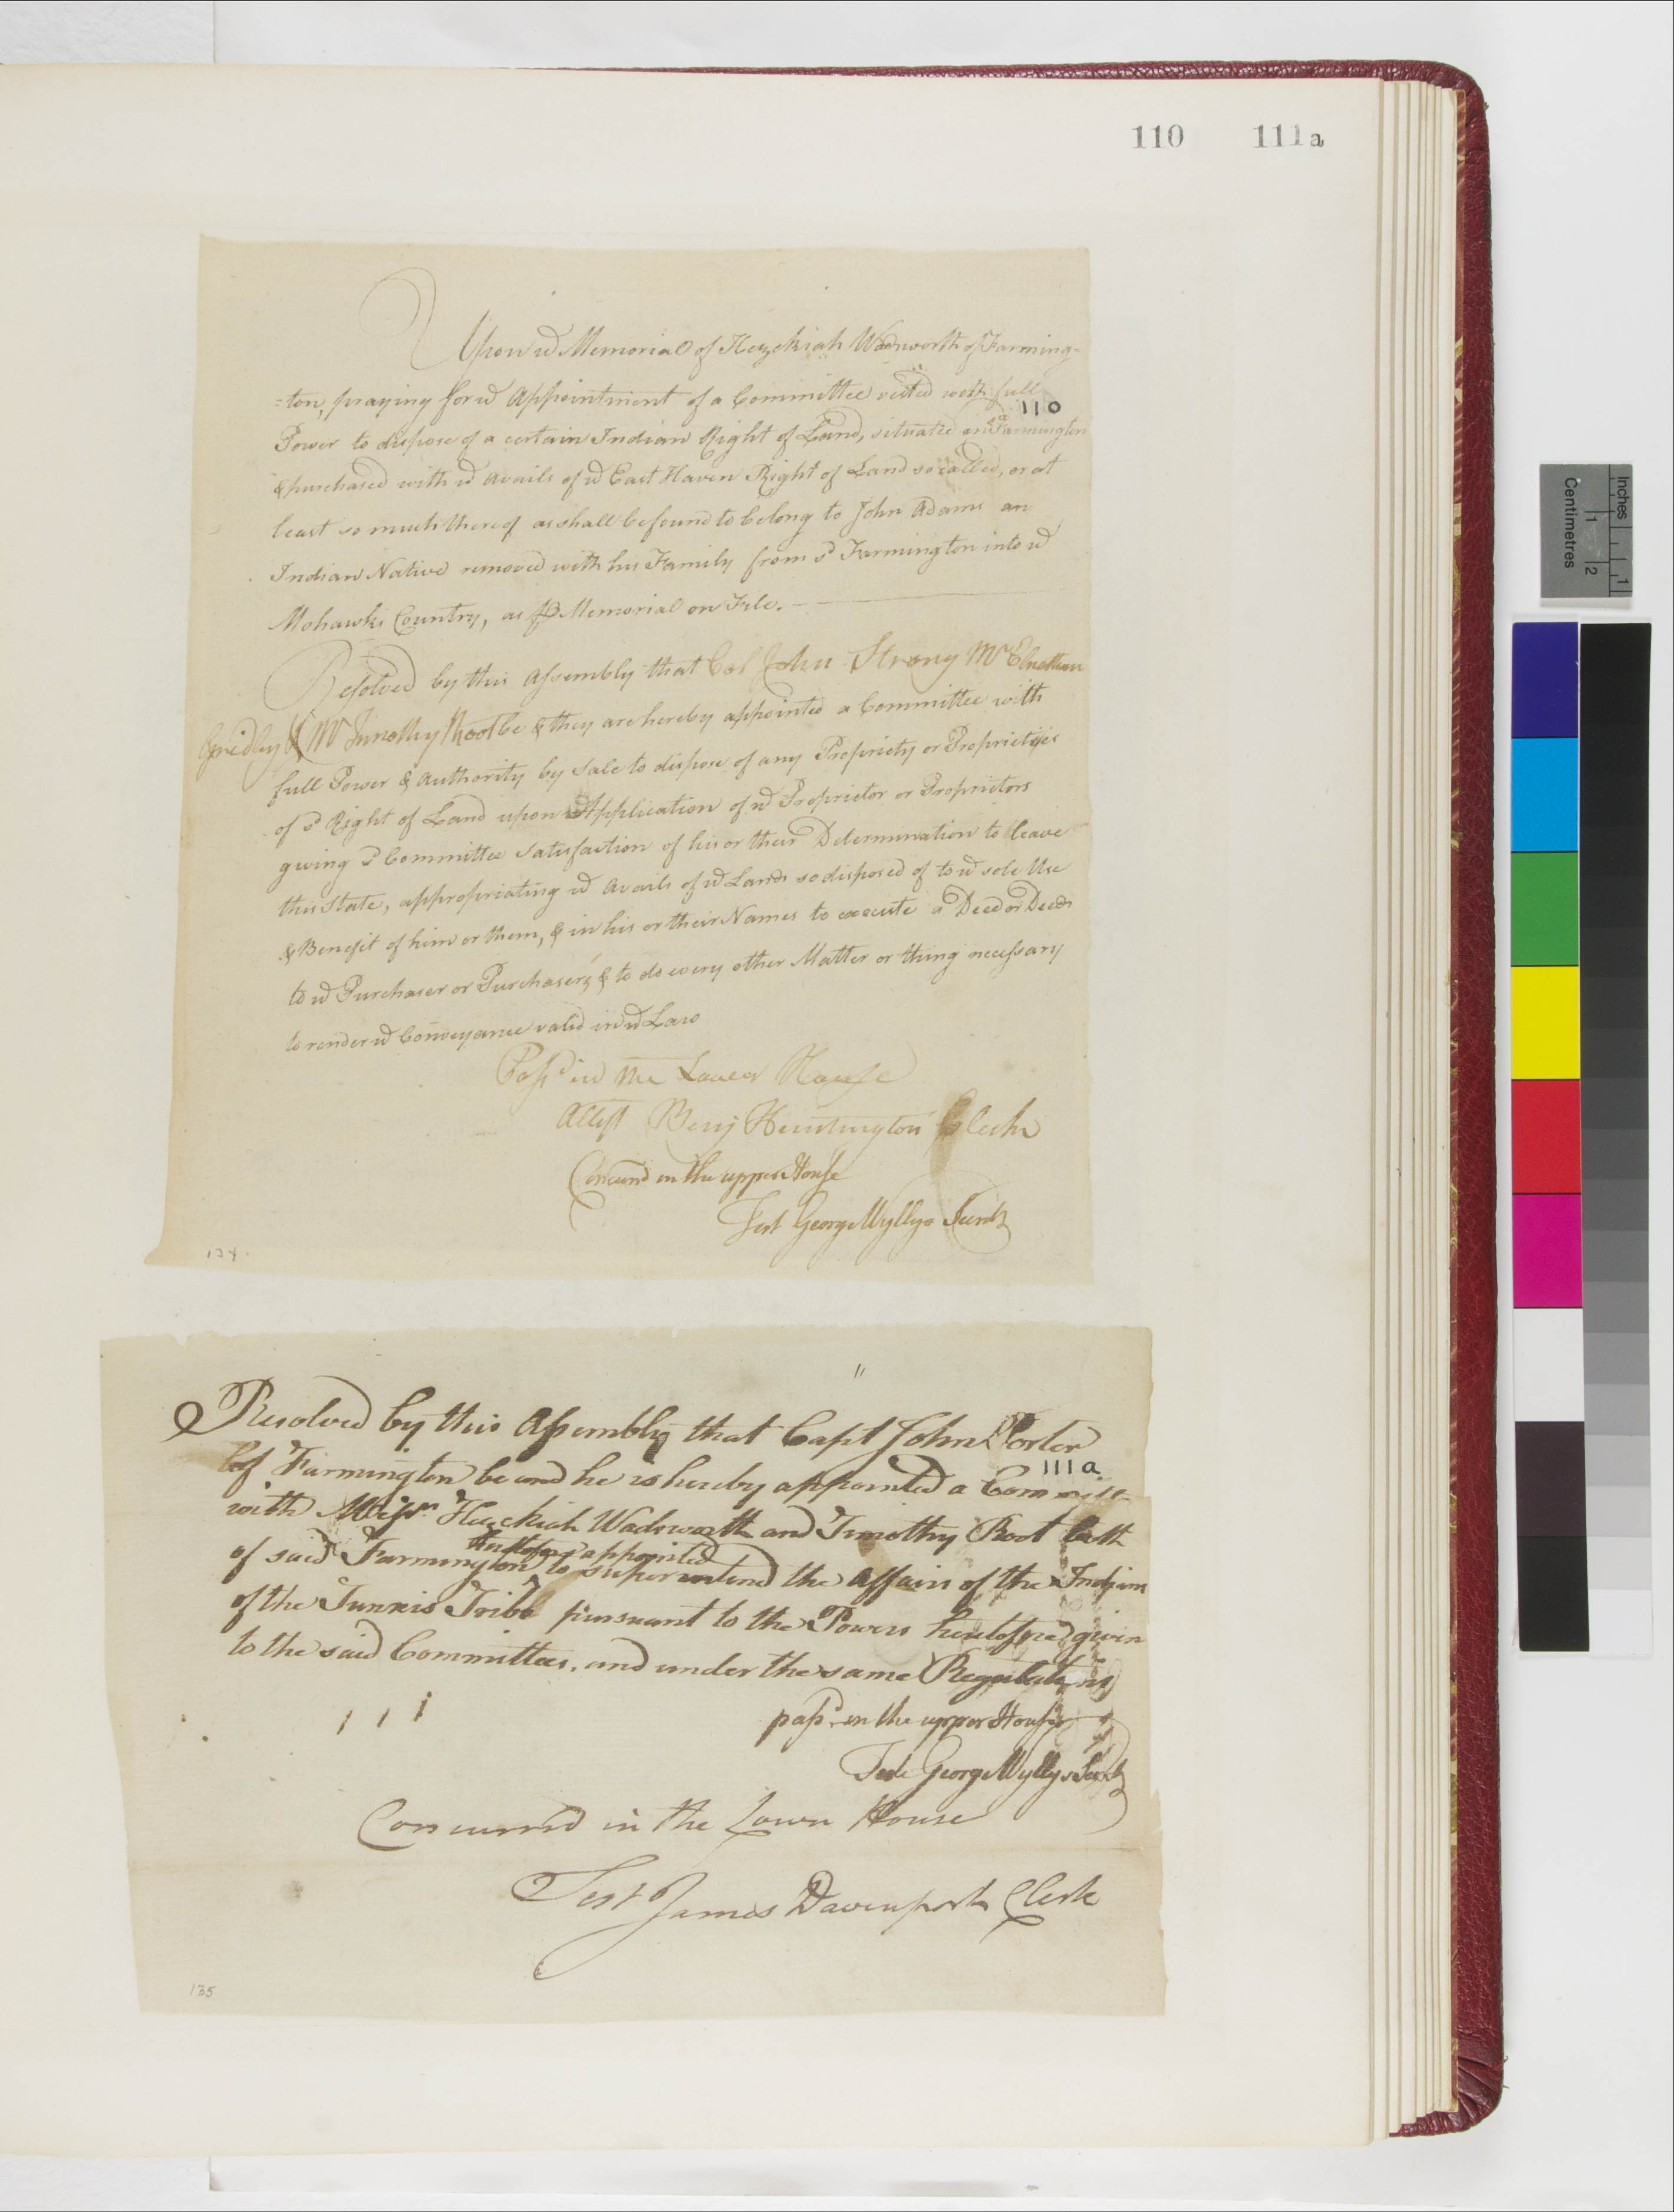 110 111a
Upon ye Memorial of Hezekiah Wadworth of Farming-
=ton, praying for ye Appointment of a Committee vested with full
110
Power to dispose of a certain Indian Right of Land, situated in sd Farmington
& purchased with ye avails of ye East Haven Right of Land so called, or at
least so much thereof as shall be found to belong to John Adams an
Indian Native removed with his Family from sd Farmington into ye
Mohawks Country, as pr Memorial on File. —
Resolved by this Assembly that Col John Strong Mr Elnathan
Gridley & Mr Timothy Root be & they are hereby appointed a Committee with
full Power & Authority by Sale to dispose of any Propriety or Proprieties
of sd Right of Land upon ye Application of ye Proprietor or Proprietors
giving sd Committee Satisfaction of his or their Determination to leave
this State, appropriating ye Avails of ye Lands so disposed of to ye sole Use
& Benefit of him or them, & in his or their Names to execute a Deed or Deeds
to ye Purchaser or Purchasers, & to do every other Matter or thing necessary
to render ye Conveyance valid in ye Law
Passd in the Lower House
Attest Benj Huntington Clerk
Concurd in the upper House
Test George Wyllys Secrety
134.
Resolved by this Assembly that Capt John Porter
of Farmington be and he is hereby appointed a Committ
111a
with Messrs Hezekiah Wadsworth and Timothy Root both
heretofore appointed
of said Farmington to superintend the Affairs of the Indians
of the Tunxis Tribe pursuant to the Powers heretofore given
to the said Committee, and under the same Regulations
111
passd in the upper House
Teste George Wyllys Secrety
Concurred in the Lower House
Test James Davenport Clerk
135
Inches
1
Centimetres
1
2